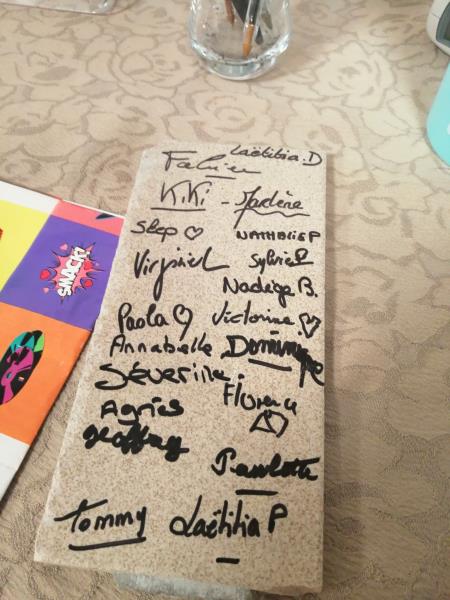 Laëtitia.D
Fabien
KiKi - Marlène
Step ♡ NATHALIE P
Virginie L Sylvie P
Nadège B.
Paola ♡ Victorine ♡
Annabelle Dominique
Séverine.
Florence
Agnès
Geoffrey
Paulette
Tommy Laëtitia P
SMACK!